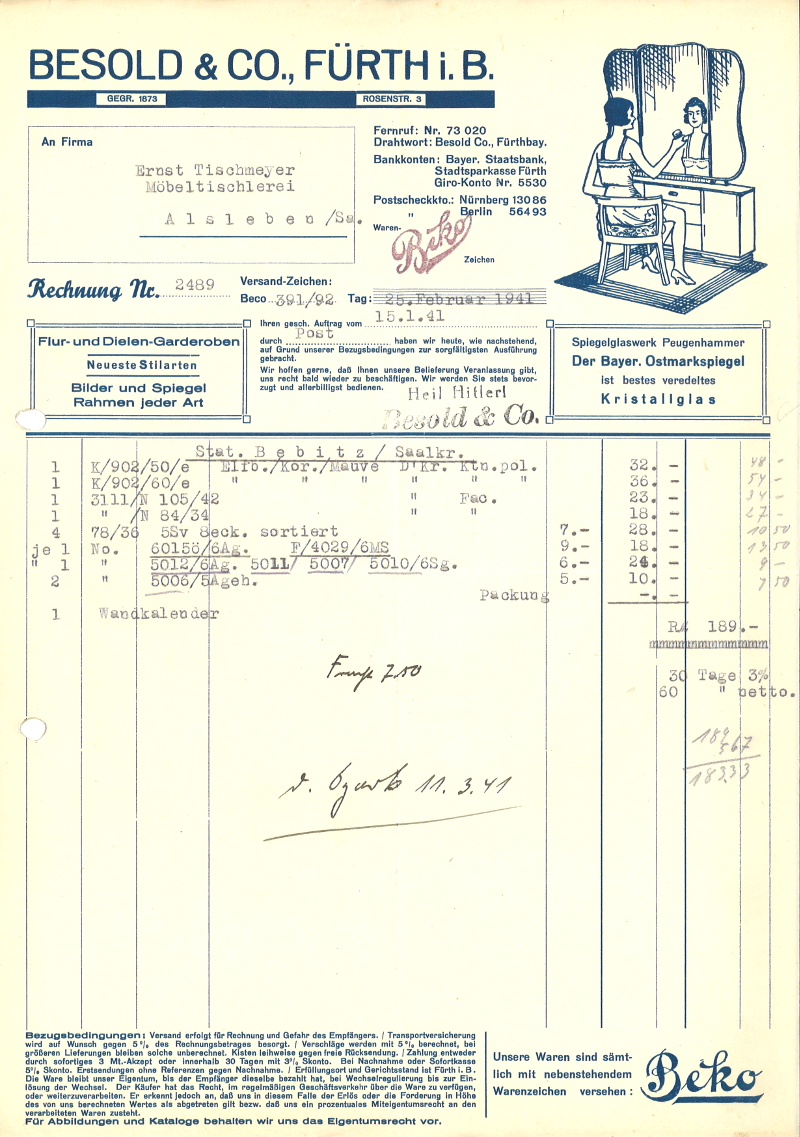 BESOLD & CO., FÜRTH i. B.
GEGR. 1873
ROSENSTR. 3
An Firma
Ernst Tischmeyer
Möbeltischlerei
Alsleben/Sa.
Fernruf: Nr. 73 020
Drahtwort: Besold Co., Fürthbay.
Bankkonten: Bayer. Staatsbank,
Stadtsparkasse Fürth
Giro-Konto Nr. 5530
Postscheckkto.: Nürnberg 13086
" Berlin 56493
Waren-
Beko
Zeichen
Rechnung Nr. 2489
Versand-Zeichen:
Beco 391/92 Tag: 25. Februar 1941
Flur- und Dielen-Garderoben
Neueste Stilarten
Bilder und Spiegel
Rahmen jeder Art
Ihren gesch. Auftrag vom 15.1.41
durch Post haben wir heute, wie nachstehend,
auf Grund unserer Bezugsbedingungen zur sorgfältigsten Ausführung
gebracht.
Wir hoffen gerne, daß Ihnen unsere Belieferung Veranlassung gibt,
uns recht bald wieder zu beschäftigen. Wir werden Sie stets bevor-
zugt und allerbilligst bedienen.
Heil Hitler!
Besold & Co.
Spiegelglaswerk Peugenhammer
Der Bayer. Ostmarkspiegel
ist bestes veredeltes
Kristallglas
Stat. Bebitz / Saalkr.
1 K/902/50/e Elfb./Kor./Mauve D'Kr. Ktn.pol. 32.- 48 -
1 K/902/60/e " " " " " " 36.- 54 -
1 3111/N 105/42 " Fac. 23.- 34 -
1 " /N 84/34 " " 18.- 27 -
4 78/36 5Sv 8eck. sortiert 7.- 28.- 10 50
je 1 No. 60156/6Ag. F/4029/6MS 9.- 18.- 13 50
" 1 " 5012/6Ag. 5011/ 5007/ 5010/6Sg. 6.- 24.- 9 -
2 " 5006/5Ageh. 5.- 10.- 7 50
Packung -.-
1 Wandkalender
RM 189.-
30 Tage 3%
60 " netto.
7.50
189
5 67
183.33
11.3.41
Bezugsbedingungen: Versand erfolgt für Rechnung und Gefahr des Empfängers. / Transportversicherung
wird auf Wunsch gegen 5% des Rechnungsbetrages besorgt. / Verschläge werden mit 5% berechnet, bei
größeren Lieferungen bleiben solche unberechnet. Kisten leihweise gegen freie Rücksendung. / Zahlung entweder
durch sofortiges 3 Mt.-Akzept oder innerhalb 30 Tagen mit 3% Skonto. Bei Nachnahme oder Sofortkasse
5% Skonto. Erstsendungen ohne Referenzen gegen Nachnahme. / Erfüllungsort und Gerichtsstand ist Fürth i. B.
Die Ware bleibt unser Eigentum, bis der Empfänger dieselbe bezahlt hat, bei Wechselregulierung bis zur Ein-
lösung der Wechsel. Der Käufer hat das Recht, im regelmäßigen Geschäftsverkehr über die Ware zu verfügen,
oder weiterzuverarbeiten. Er erkennt jedoch an, daß uns in diesem Falle der Erlös oder die Forderung in Höhe
des von uns berechneten Wertes als abgetreten gilt bezw. daß uns ein prozentuales Miteigentumsrecht an den
verarbeiteten Waren zusteht.
Für Abbildungen und Kataloge behalten wir uns das Eigentumsrecht vor.
Unsere Waren sind sämt-
lich mit nebenstehendem
Warenzeichen versehen:
Beko